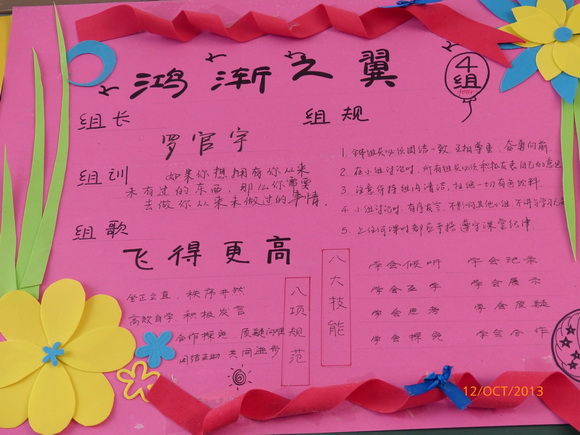 鸿渐之翼
4组
组长
罗官宇
组训
如果你想拥有你从来
未有过的东西，那么你需要
去做你从来未做过的事情。
组歌
飞得更高
组规
1. 全体组员必须团结一致，互相尊重，奋勇向前。
2. 在小组讨论时，所有组员必须积极发表自己的意见
3. 注意保持组内清洁，杜绝一切有色饮料。
4. 小组讨论时，有序发言，不影响其他小组，不得与学习
5. 上任何课时都应严格遵守课堂纪律
坐正立直，秩序井然
高效自学 积极发言
合作探究 质疑问难
团结互助 共同进步
八项规范
八大技能
学会倾听 学会记录
学会自学 学会展示
学会思考 学会质疑
学会探究 学会合作
12/OCT/2013